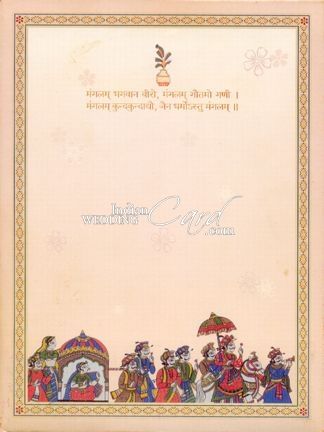 मंगलम् भगवान वीरो, मंगलम् गौतमो गणी ।
मंगलम् कुन्दकुन्दाद्यो, जैन धर्मोऽस्तु मंगलम् ॥
Indian
WEDDING Card
.com